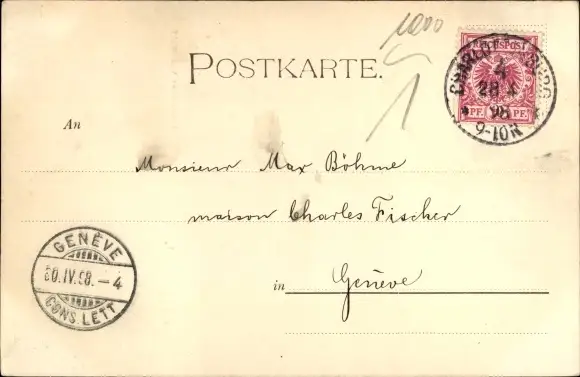 1000
POSTKARTE.
REICHSPOST
4
28 4
98
9-10N
PF. PF.
An
Monsieur Max Böhme
maison Charles Fischer
in Genève
GENÈVE
30.IV.98.-4
CONS. LETT